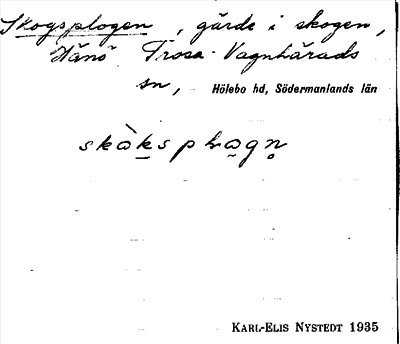 Skogsplogen, gärde i skogen,
Hånö Trosa-Vagnhärads
sn, Hölebo hd, Södermanlands län
KARL-ELIS NYSTEDT 1935